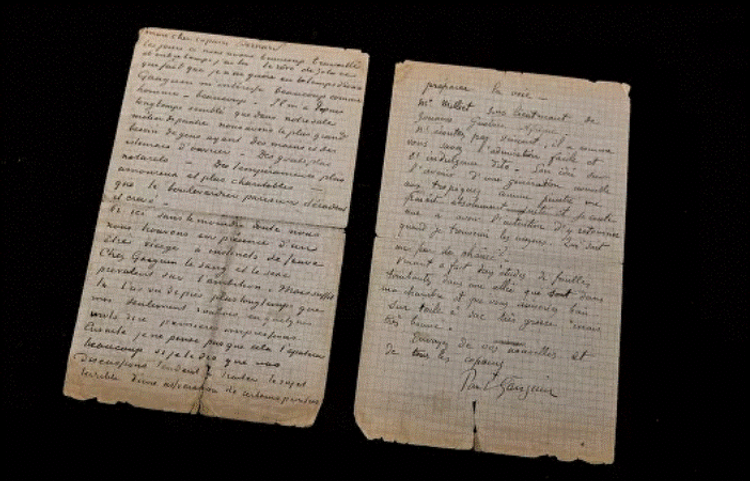 mon cher copain Bernard
Ces jours ci nous avons beaucoup travaillé
et entretemps j'ai lu le rêve de Zola ce
qui fait que je n'ai guère eu le temps d'écrire
Gauguin m'intéresse beaucoup comme
homme - beaucoup. - Il m'a depuis
longtemps semblé que dans notre sale
métier de peintre nous avons le plus grand
besoin de gens ayant des mains et des
estomacs d'ouvrier - Des gouts plus
naturels - Des temperaments plus
amoureux et plus charitables -
que le boulevardier parisien décadent
et crevé -
Or ici sans le moindre doute nous
nous trouvons en présence d'un
être vierge à instincts de
Chez Gauguin le sang et le sexe
prévalent sur l'ambition. Mais suffit
tu l'as vu de près plus longtemps que
moi seulement voulais en quelques
mots dire premieres impressions
Ensuite je ne pense pas que cela t'épatera
beaucoup si je te dis que nos
discussions tendent à traiter le sujet
terrible d'une association de certains peintres
preparer la voie -
Mr Milliet sous lieutenant de
Zouaves Guelma Afrique
N'écoutez pas Vincent, il a comme
vous savez l'admiration facile et
l'indulgence dito. Son idée sur
l'avenir d'une génération nouvelle
aux tropiques comme peintre me
parait absolument juste et je conti
nue à avoir l'intention d'y retourner
quand je trouverai les moyens. Qui sait
un peu de chance?
Vincent a fait deux études de feuilles
tombantes dans une allée qui sont dans
ma chambre et que vous aimeriez bien
sur toile à sac très grosse mais
très bonne.
Envoyez de vos nouvelles et
de tous les copains
Paul Gauguin